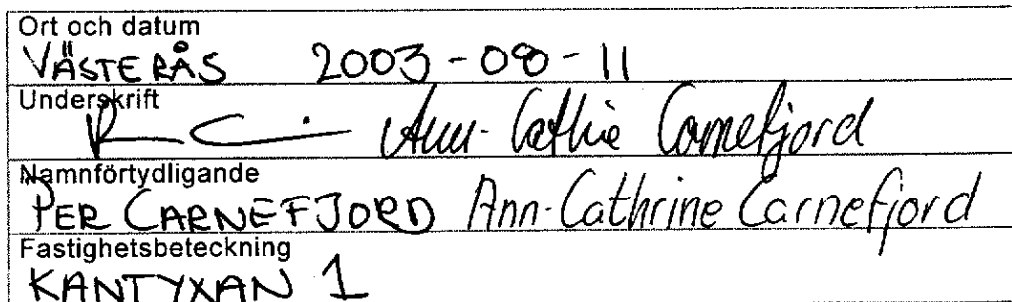 Ort och datum
VÄSTERÅS 2003-08-11
Underskrift
Ann-Cathrine Carnefjord
Namnförtydligande
PER CARNEFJORD Ann-Cathrine Carnefjord
Fastighetsbeteckning
KANTYXAN 1